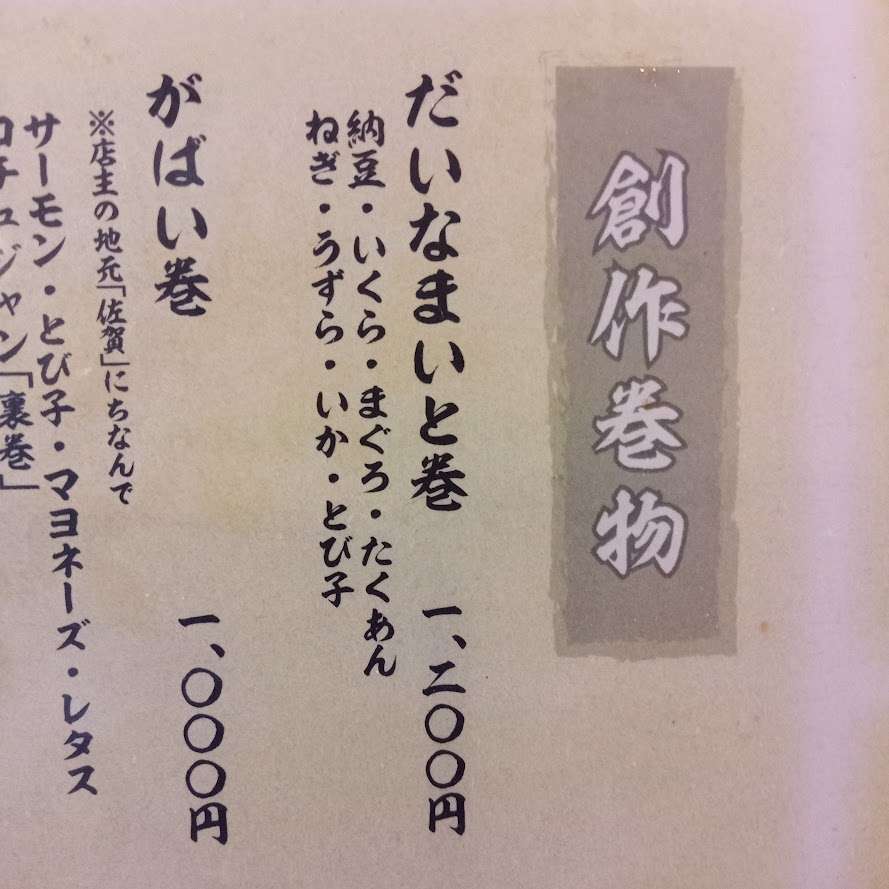 創作巻物
だいなまいと巻 一、二〇〇円
納豆・いくら・まぐろ・たくあん
ねぎ・うずら・いか・とび子
がばい巻 一、〇〇〇円
※店主の地元「佐賀」にちなんで
サーモン・とび子・マヨネーズ・レタス
コチュジャン「裏巻」